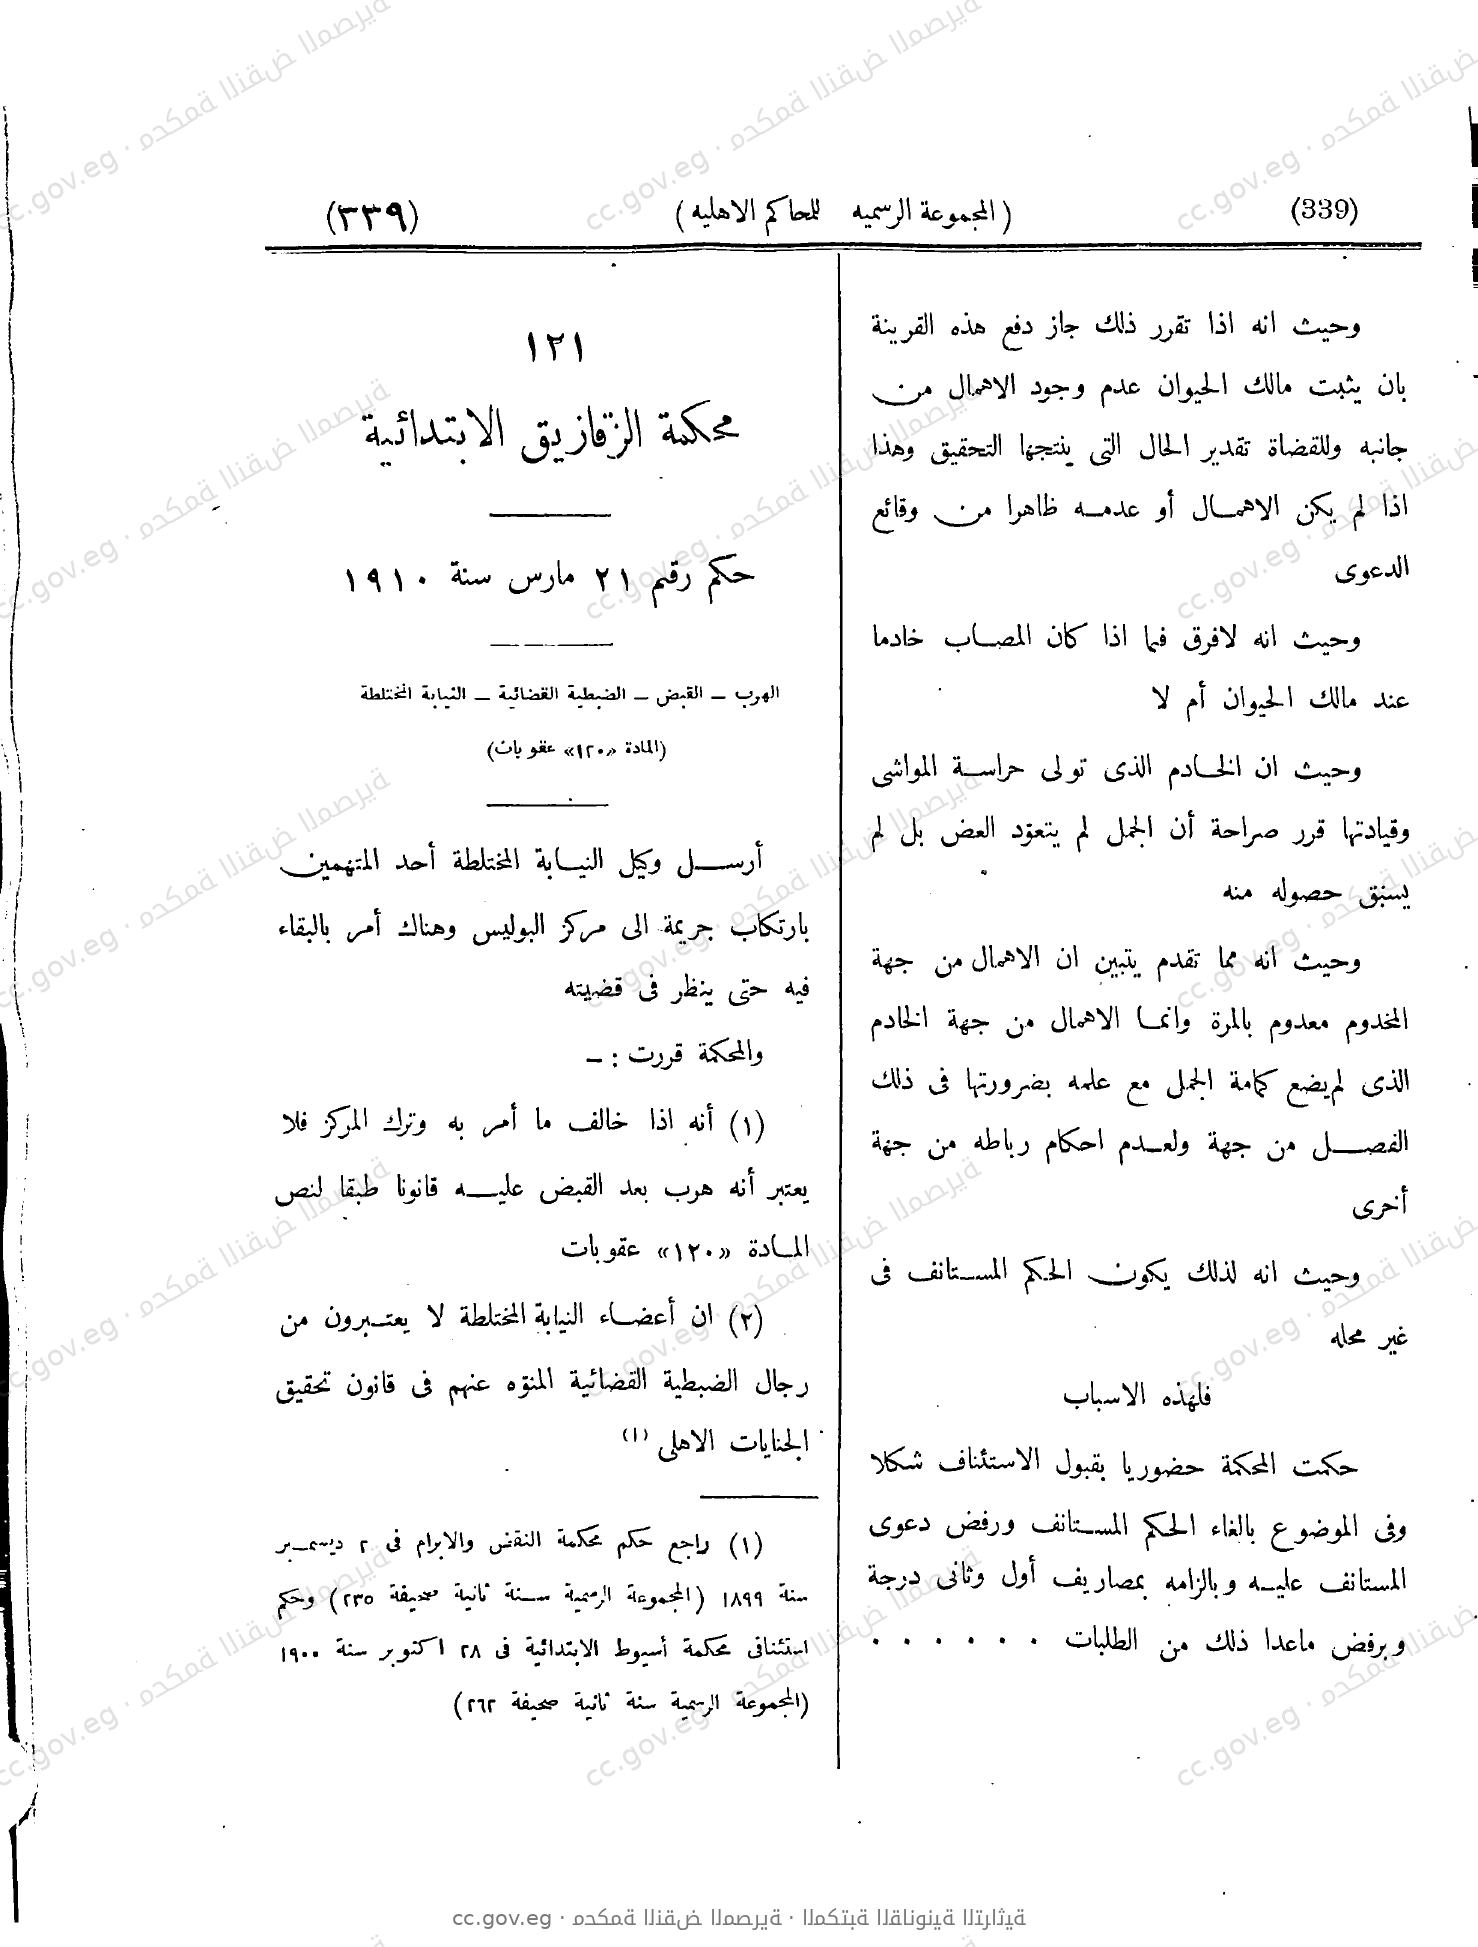 (339) (المجموعة الرسميه للمحاكم الاهليه) (٣٣٩)
وحيث انه اذا تقرر ذلك جاز دفع هذه القرينة
بان يثبت مالك الحيوان عدم وجود الاهمال من
جانبه وللقضاة تقدير الحال التى ينتجها التحقيق وهذا
اذا لم يكن الاهمال أو عدمه ظاهرا من وقائع
الدعوى
وحيث انه لافرق فيما اذا كان المصاب خادما
عند مالك الحيوان أم لا
وحيث ان الخادم الذى تولى حراسة المواشى
وقيادتها قرر صراحة أن الجمل لم يتعوّد العض بل لم
يسبق حصوله منه
وحيث انه مما تقدم يتبين ان الاهمال من جهة
المخدوم معدوم بالمرة وانما الاهمال من جهة الخادم
الذى لم يضع كمامة الجمل مع علمه بضرورتها فى ذلك
الفصل من جهة ولعدم احكام رباطه من جهة
أخرى
وحيث انه لذلك يكون الحكم المستانف فى
غير محله
فلهذه الاسباب
حكمت المحكمة حضوريا بقبول الاستئناف شكلا
وفى الموضوع بالغاء الحكم المستانف ورفض دعوى
المستانف عليه وبالزامه بمصاريف أول وثانى درجة
وبرفض ماعدا ذلك من الطلبات . . . . . .
١٢١
محكمة الزقازيق الابتدائية
حكم رقيم ٢١ مارس سنة ١٩١٠
الهرب – القبض – الضبطية القضائية – النيابة المختلطة
(المادة «١٢٠» عقوبات)
أرسل وكيل النيابة المختلطة أحد المتهمين
بارتكاب جريمة الى مركز البوليس وهناك أمر بالبقاء
فيه حتى ينظر فى قضيته
والمحكمة قررت : –
(١) أنه اذا خالف ما أمر به وترك المركز فلا
يعتبر أنه هرب بعد القبض عليه قانونا طبقا لنص
المادة «١٢٠» عقوبات
(٢) ان أعضاء النيابة المختلطة لا يعتبرون من
رجال الضبطية القضائية المنوّه عنهم فى قانون تحقيق
الجنايات الاهلى (١)
(١) راجع حكم محكمة النقض والابرام فى ٢ ديسمبر
سنة ١٨٩٩ (المجموعة الرسمية سنة ثانية صحيفة ٢٣٥) وحكم
استئنافى محكمة أسيوط الابتدائية فى ٢٨ اكتوبر سنة ١٩٠٠
(المجموعة الرسمية سنة ثانية صحيفة ٢٦٢)
cc.gov.eg · محكمة النقض المصرية · المكتبة القانونية التراثية